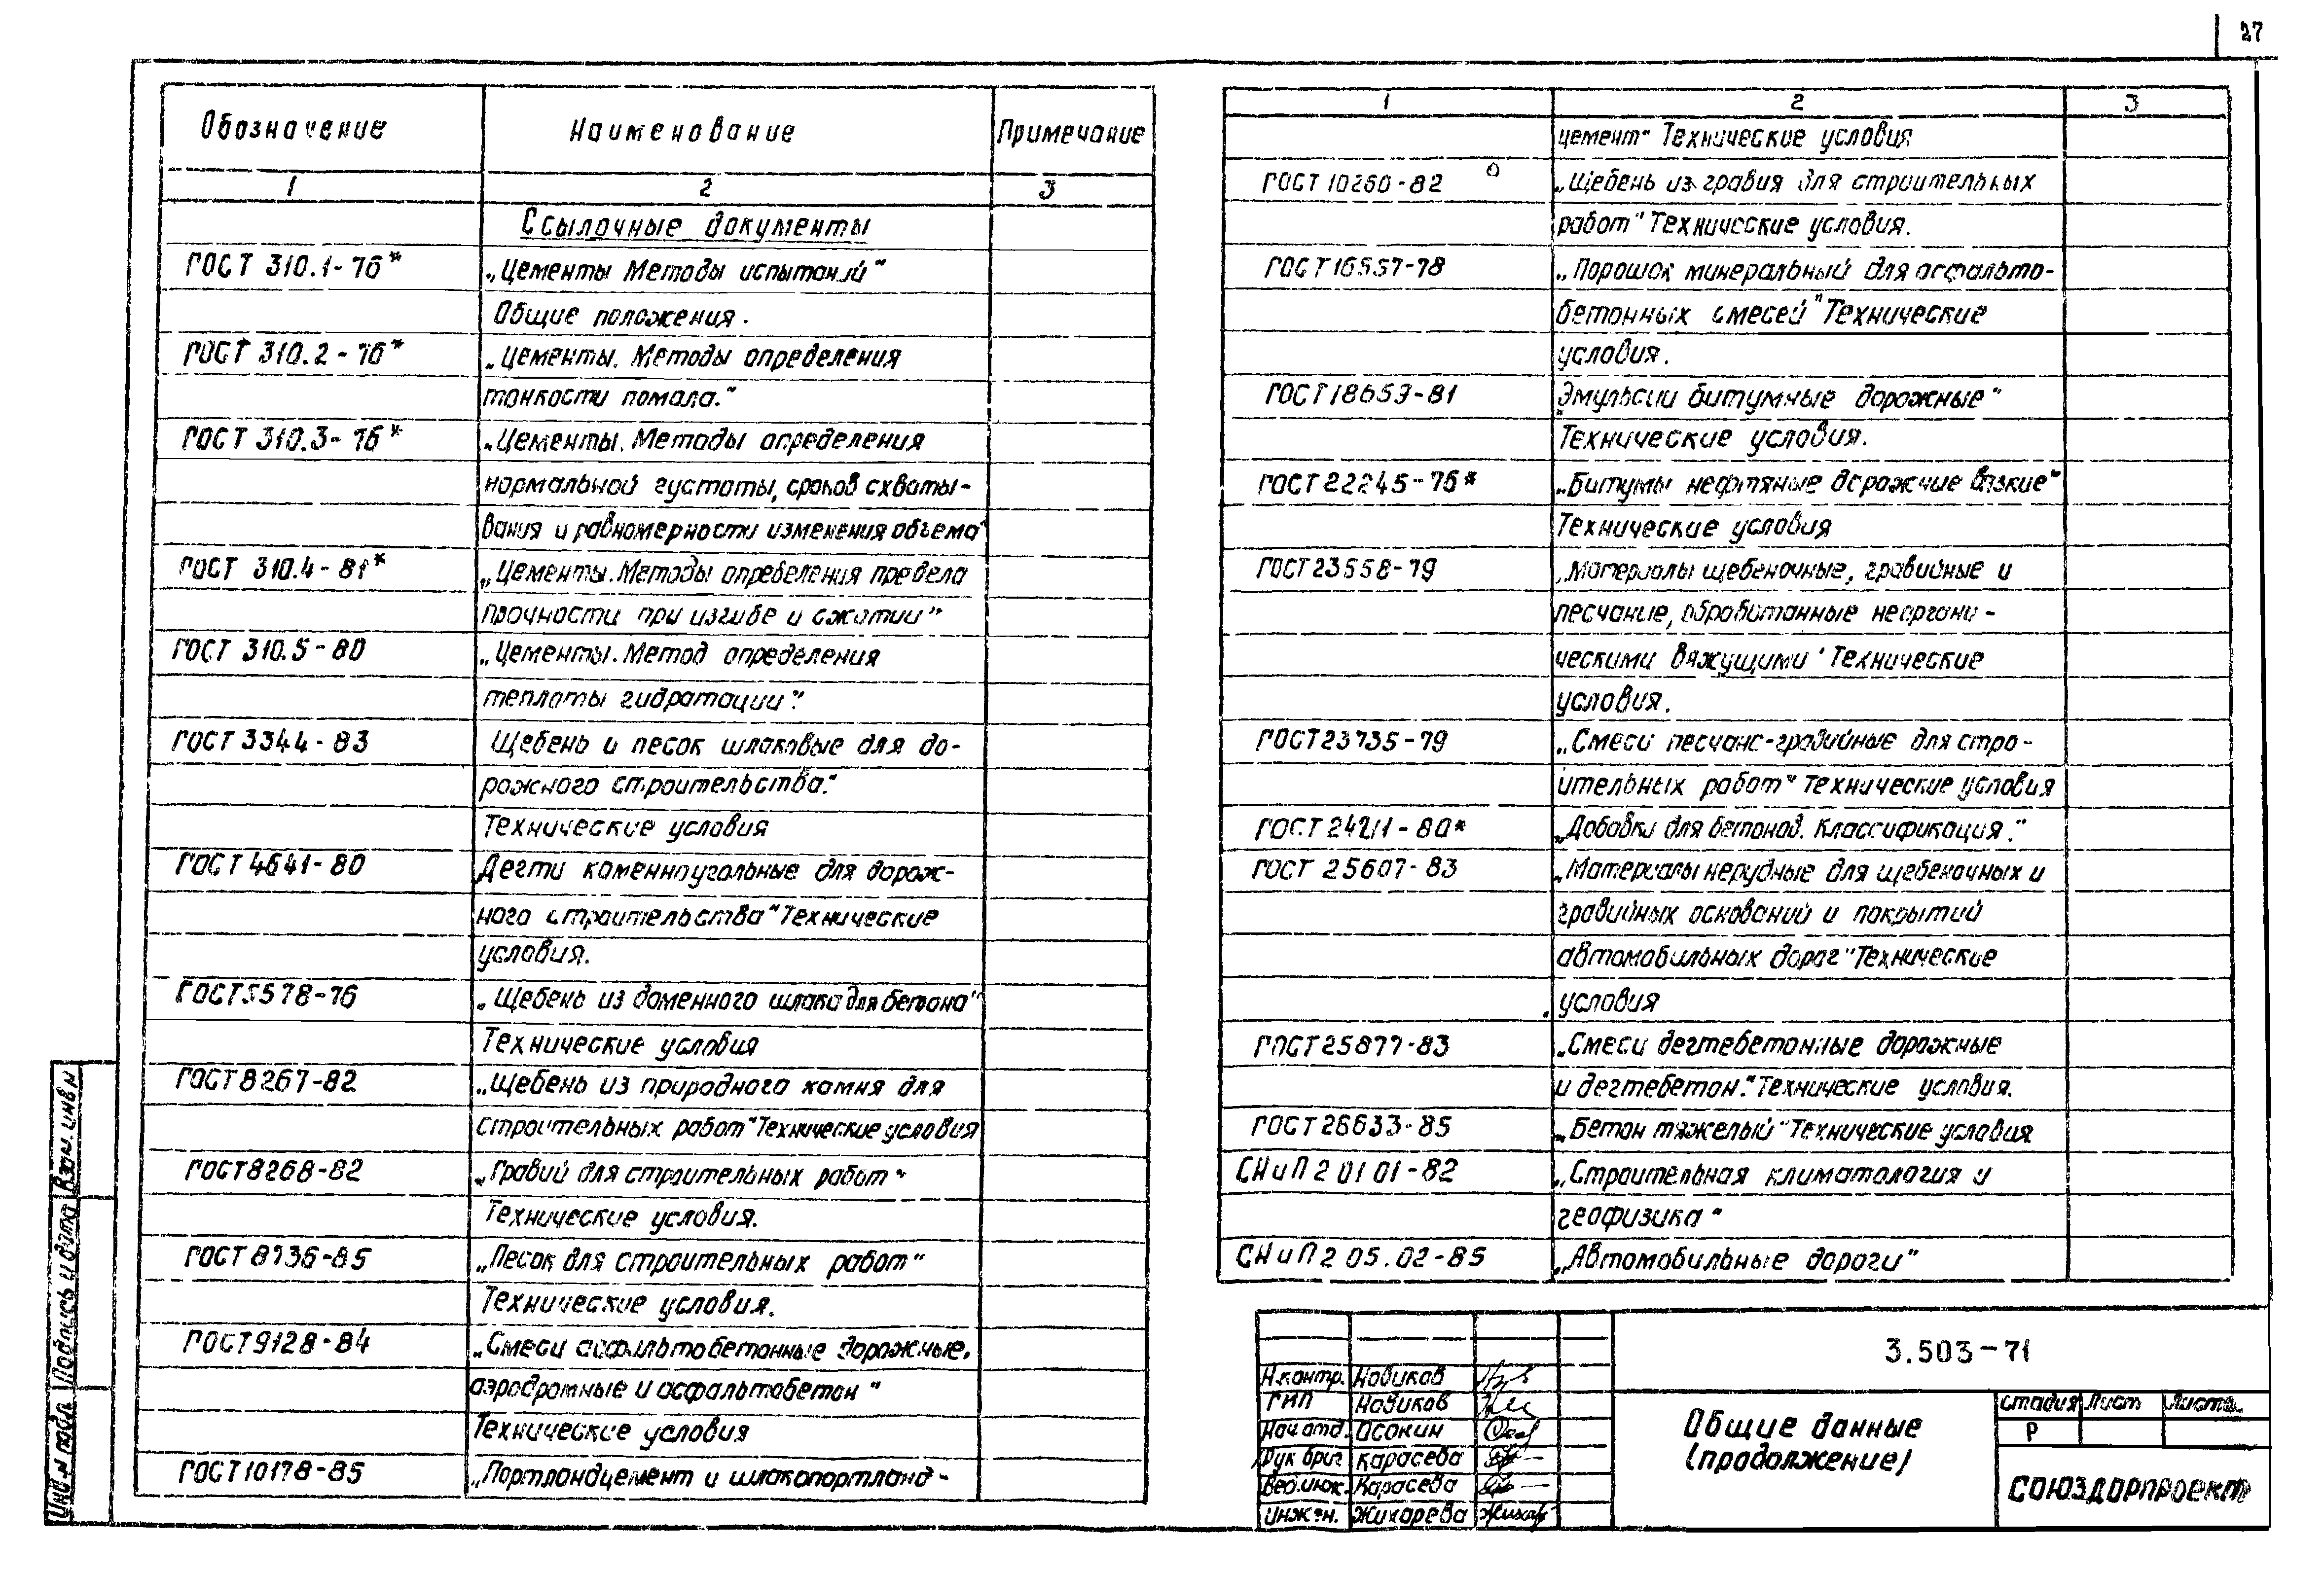 27
Обозначение Наименование Примечание
1 2 3
Ссылочные документы
ГОСТ 310.1-76* „Цементы Методы испытаний“
Общие положения.
ГОСТ 310.2-76* „Цементы. Методы определения
тонкости помола.“
ГОСТ 310.3-76* „Цементы. Методы определения
нормальной густоты, сроков схваты-
вания и равномерности изменения объема“
ГОСТ 310.4-81* „Цементы. Методы определения предела
прочности при изгибе и сжатии“
ГОСТ 310.5-80 „Цементы. Метод определения
теплоты гидратации“.
ГОСТ 3344-83 Щебень и песок шлаковые для до-
рожного строительства.“
Технические условия
ГОСТ 4641-80 Дегти каменноугольные для дорож-
ного строительства“ Технические
условия.
ГОСТ 5578-76 „Щебень из доменного шлака для бетона“
Технические условия
ГОСТ 8267-82 „Щебень из природного камня для
строительных работ“ Технические условия
ГОСТ 8268-82 „Гравий для строительных работ“
Технические условия.
ГОСТ 8736-85 „Песок для строительных работ“
Технические условия.
ГОСТ 9128-84 „Смеси асфальтобетонные дорожные,
аэродромные и асфальтобетон“
Технические условия
ГОСТ 10178-85 „Портландцемент и шлакопортланд-
1 2 3
цемент“ Технические условия
ГОСТ 10260-82 „Щебень из гравия для строительных
работ“ Технические условия.
ГОСТ 16557-78 „Порошок минеральный для асфальто-
бетонных смесей“ Технические
условия.
ГОСТ 18659-81 „Эмульсии битумные дорожные“
Технические условия.
ГОСТ 22245-76* „Битумы нефтяные дорожные вязкие“
Технические условия
ГОСТ 23558-79 „Материалы щебеночные, гравийные и
песчаные, обработанные неоргани-
ческими вяжущими“ Технические
условия.
ГОСТ 23735-79 „Смеси песчано-гравийные для стро-
ительных работ“ Технические условия
ГОСТ 24211-80* „Добавки для бетонов. Классификация.“
ГОСТ 25607-83 „Материалы нерудные для щебеночных и
гравийных оснований и покрытий
автомобильных дорог“ Технические
условия
ГОСТ 25877-83 „Смеси дегтебетонные дорожные
и дегтебетон.“ Технические условия.
ГОСТ 26633-85 „Бетон тяжелый“ Технические условия
СНиП 2 01 01-82 „Строительная климатология и
геофизика“
СНиП 2 05.02-85 „Автомобильные дороги“
3.503-71
Н.контр. Новиков
ГИП Новиков
Нач отд. Осокин
Рук бриг Карасева
Вед.инж. Карасева
Инжен. Жихарева Жихар
Общие данные
(продолжение)
Стадия Лист Листов
Р
СОЮЗДОРПРОЕКТ
Инв.N подл. Подпись и дата Взам. инв N